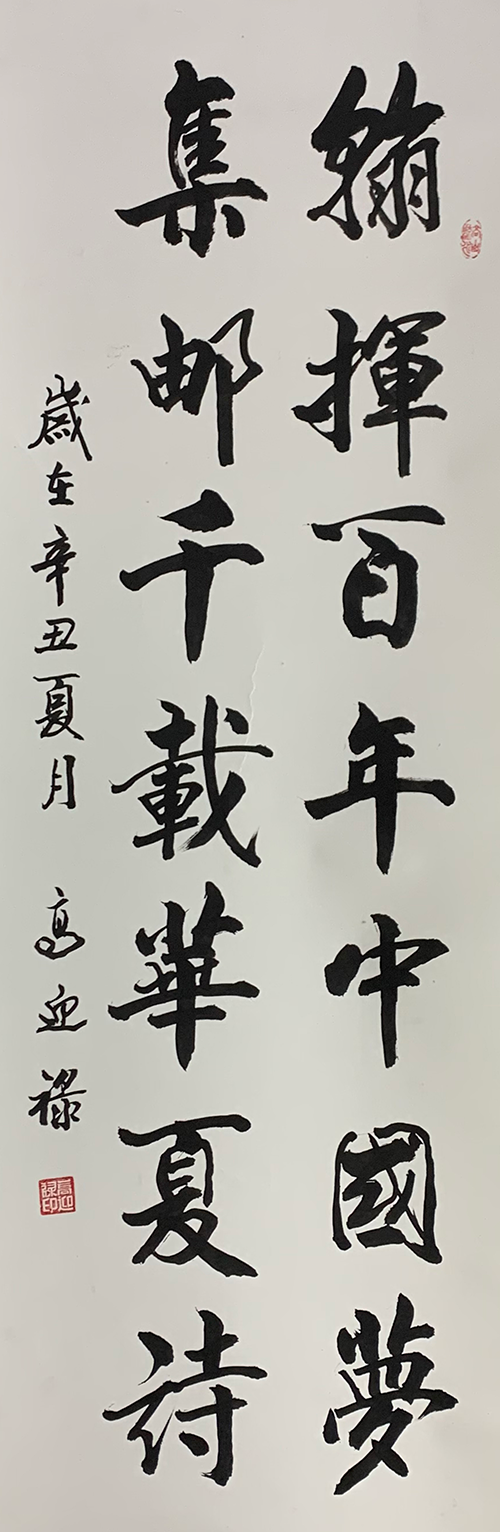 翰揮百年中國夢
集邮千載華夏詩
歲在辛丑夏月 高迎祿
高迎祿印